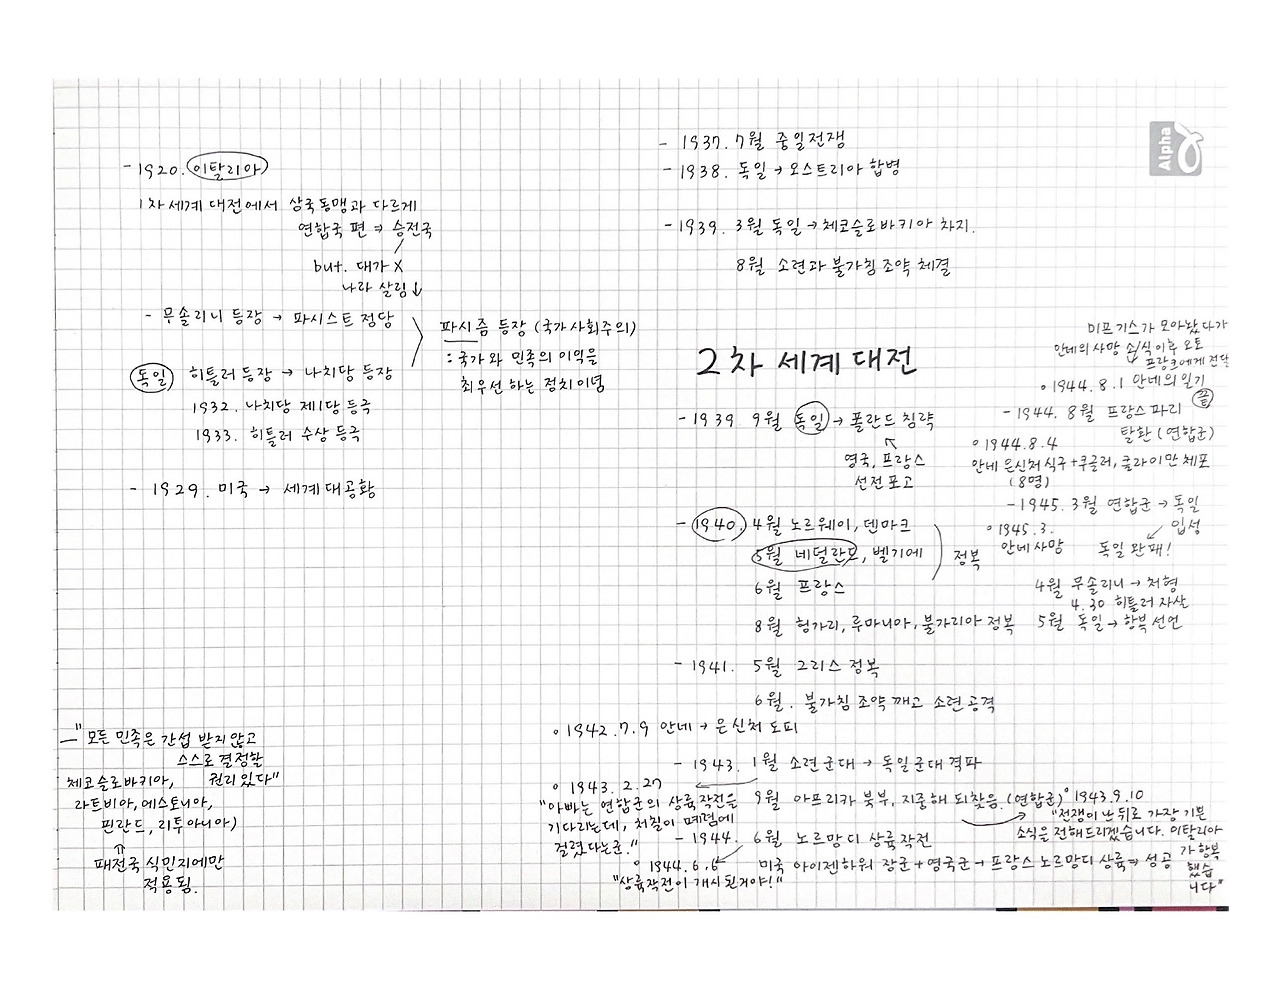 - 1920. 이탈리아
1차 세계 대전에서 삼국동맹과 다르게
연합국 편 ⇒ 승전국
but. 대가 X
나라 살림↓
- 무솔리니 등장 → 파시스트 정당
독일 히틀러 등장 → 나치당 등장
1932. 나치당 제1당 등극
1933. 히틀러 수상 등극
파시즘 등장 (국가사회주의)
: 국가와 민족의 이익을
최우선 하는 정치이념
- 1929. 미국 → 세계 대공황
"모든 민족은 간섭 받지 않고
스스로 결정할
권리 있다"
체코슬로바키아,
라트비아, 에스토니아,
핀란드, 리투아니아)
⇑
패전국 식민지에만
적용됨.
- 1937. 7월 중일전쟁
- 1938. 독일 → 오스트리아 합병
- 1939. 3월 독일 → 체코슬로바키아 차지.
8월 소련과 불가침 조약 체결
Alpha
2차 세계 대전
- 1939 9월 독일 → 폴란드 침략
영국, 프랑스
선전포고
- 1940. 4월 노르웨이, 덴마크
5월 네덜란드, 벨기에
정복
6월 프랑스
8월 헝가리, 루마니아, 불가리아 정복
- 1941. 5월 그리스 정복
6월. 불가침 조약 깨고 소련 공격
∘ 1942.7.9 안네 → 은신처 도피
- 1943. 1월 소련군대 → 독일군대 격파
∘ 1943.2.27
"아빠는 연합군의 상륙작전을
기다리는데, 처칠이 폐렴에
걸렸다는군."
9월 아프리카 북부, 지중해 되찾음. (연합군)
∘ 1943.9.10
"전쟁이 난 뒤로 가장 기쁜
소식을 전해드리겠습니다. 이탈리아
가 항복
했습
니다"
- 1944. 6월 노르망디 상륙작전
미국 아이젠하워 장군 + 영국군 → 프랑스 노르망디 상륙 ⇒ 성공
∘ 1944.6.6
"상륙작전이 개시된거야!"
미프 기스가 모아놨다가
안네의 사망 소식 이후 오토
프랑크에게 전달
∘ 1944.8.1 안네의 일기
끝
- 1944. 8월 프랑스 파리
탈환 (연합군)
∘ 1944.8.4
안네 은신처 식구 + 쿠글러, 클라이만 체포
(8명)
- 1945. 3월 연합군 → 독일
입성
독일 완패!
∘ 1945.3.
안네 사망
4월 무솔리니 → 처형
4.30 히틀러 자살
5월 독일 → 항복 선언